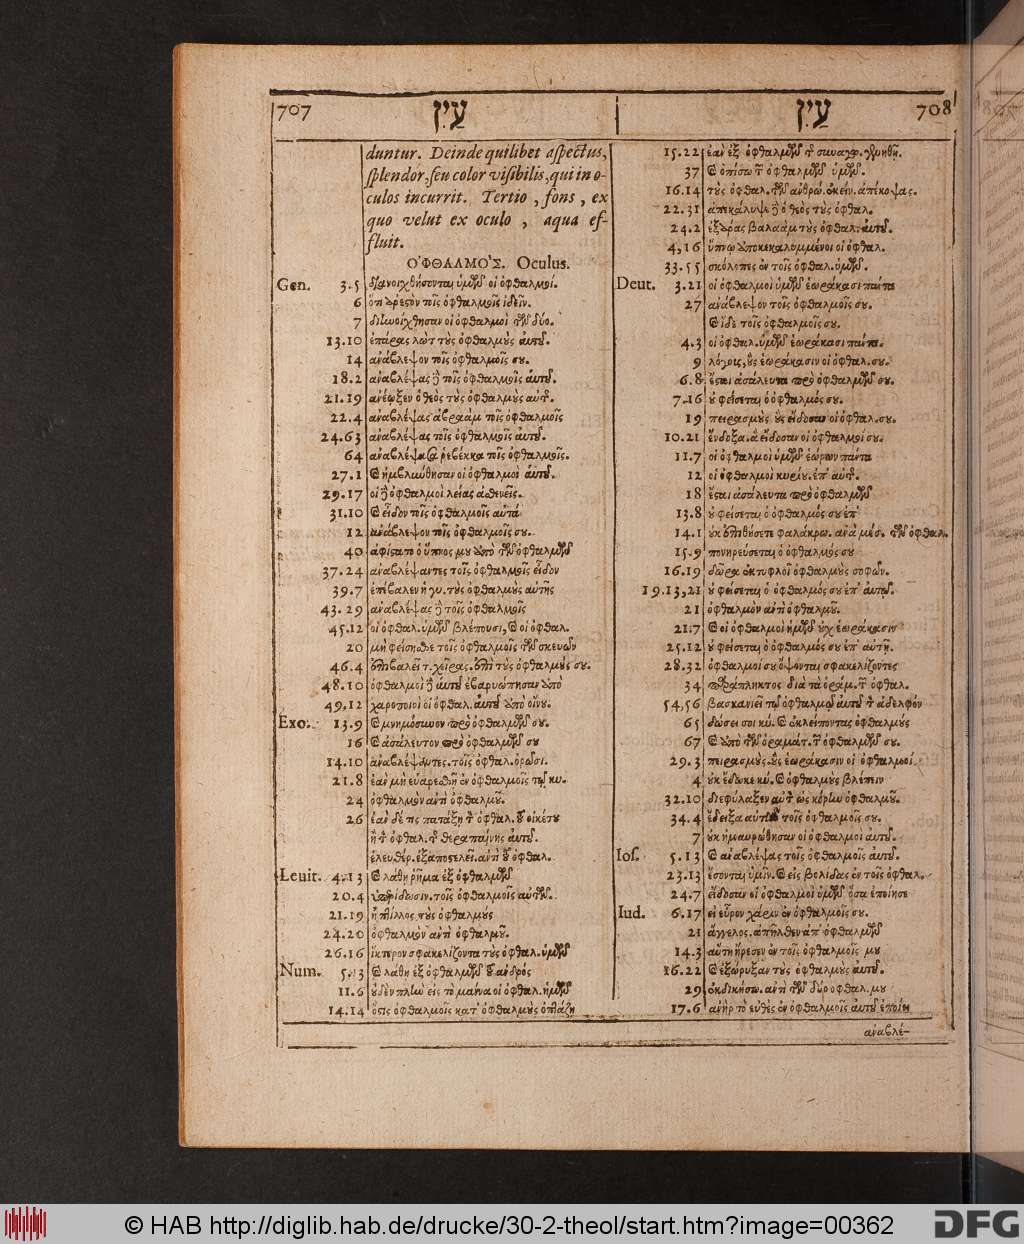 707
עַיִן
עַיִן
708
duntur. Deinde quilibet aspectus,
splendor, seu color visibilis, qui in o-
culos incurrit. Tertio, fons, ex
quo velut ex oculo, aqua ef-
fluit.
ὈΦΘΑΛΜΟΣ. Oculus.
Gen. 3.5 διανοιχθήσονται ὑμῶν οἱ ὀφθαλμοί.
6 ὅτι ἀρεςὸν τοῖς ὀφθαλμοῖς ἰδεῖν.
7 διηνοίχθησαν οἱ ὀφθαλμοὶ τῶν δύο.
13.10 ἐπάρας λὼτ τοὺς ὀφθαλμοὺς αὐτοῦ.
14 ἀνάβλεψον τοῖς ὀφθαλμοῖς σου.
18.2 ἀναβλέψας δὲ τοῖς ὀφθαλμοῖς αὐτοῦ.
21.19 ἀνέωξεν ὁ θεὸς τοὺς ὀφθαλμοὺς αὐτ.
22.4 ἀναβλέψας ἀβραὰμ τοῖς ὀφθαλμοῖς
24.63 ἀναβλέψας τοῖς ὀφθαλμοῖς αὐτοῦ.
64 ἀναβλέψασα ῥεβέκκα τοῖς ὀφθαλμοῖς.
27.1 καὶ ἠμβλύνθησαν οἱ ὀφθαλμοὶ αὐτοῦ.
29.17 οἱ δὲ ὀφθαλμοὶ λείας ἀσθενεῖς.
31.10 καὶ εἶδον τοῖς ὀφθαλμοῖς αὐτὰ
12 ἀνάβλεψον τοῖς ὀφθαλμοῖς σου.
40 ἀφίςατο ὁ ὕπνος μου ἀπὸ τῶν ὀφθαλμῶν
37.24 ἀναβλέψαντες τοῖς ὀφθαλμοῖς εἶδον
39.7 ἐπέβαλεν ἡ γυ. τοὺς ὀφθαλμοὺς αὐτῆς
43.29 ἀναβλέψας δὲ τοῖς ὀφθαλμοῖς
45.12 οἱ ὀφθαλ. ὑμῶν βλέπουσι, καὶ οἱ ὀφθαλ.
20 μὴ φείσησθε τοῖς ὀφθαλμοῖς τῶν σκευῶν
46.4 ἐπιβαλεῖ τ. χεῖρας. ἐπὶ τοὺς ὀφθαλμούς σου.
48.10 ὀφθαλμοὶ δὲ αὐτοῦ ἐβαρυώπησαν ἀπὸ
49.12 χαροποιοὶ οἱ ὀφθαλ. αὐτοῦ ἀπὸ οἴνου.
Exo. 13.9 καὶ μνημόσυνον πρὸ ὀφθαλμῶν σου.
16 καὶ ἀσάλευτον πρὸ ὀφθαλμῶν σου
14.10 ἀναβλέψαντες. τοῖς ὀφθαλ. ὁρῶσι.
21.8 ἐὰν μὴ εὐαρεςῇ ἐν ὀφθαλμοῖς τῷ κυ.
24 ὀφθαλμὸν ἀντὶ ὀφθαλμοῦ.
26 ἐὰν δέ τις πατάξῃ τ ὀφθαλ. τοῦ οἰκέτου
ἢ τ ὀφθαλ. τ θεραπαίνης αὐτοῦ.
ἐλευθέρ. ἐξαποςελεῖ. ἀντὶ τοῦ ὀφθαλ.
Leuit. 4.13 καὶ λάθῃ ῥῆμα ἐξ ὀφθαλμῶν
20.4 ὑπερίδωσιν. τοῖς ὀφθαλμοῖς αὐτῶν.
21.19 ἢ πτίλλος τοὺς ὀφθαλμούς
24.20 ὀφθαλμὸν ἀντὶ ὀφθαλμοῦ.
26.16 ἴκτερον σφακελίζοντα τοὺς ὀφθαλ. ὑμῶν
Num. 5.13 καὶ λάθῃ ἐξ ὀφθαλμῶν τοῦ ἀνδρός
11.6 οὐδὲν πλὴν εἰς τὸ μάννα οἱ ὀφθαλ. ἡμῶν
14.14 ὅςις ὀφθαλμοῖς κατ' ὀφθαλμοὺς ὀπτάζῃ
15.22 ἐὰν ἐξ ὀφθαλμῶν τ συναγω. γενηθῇ.
37 καὶ ὀπίσω τ ὀφθαλμῶν ὑμῶν.
16.14 τοὺς ὀφθαλ. τῶν ἀνθρώ. ἐκείν. ἀπέκοψας.
22.31 ἀπεκάλυψε δὲ ὁ θεὸς τοὺς ὀφθαλ.
24.2 ἐξάρας βαλαὰμ τοὺς ὀφθαλ. αὐτοῦ.
4,16 ὕπνῳ ἀποκεκαλυμμένοι οἱ ὀφθαλ.
33.55 σκόλοπες ἐν τοῖς ὀφθαλ. ὑμῶν.
Deut. 3.21 οἱ ὀφθαλμοὶ ὑμῶν ἑωράκασι πάντα
27 ἀνάβλεψον τοῖς ὀφθαλμοῖς σου.
καὶ ἴδε τοῖς ὀφθαλμοῖς σου.
4.3 οἱ ὀφθαλ. ὑμῶν ἑωράκασι πάντα.
9 λόγους, οὓς ἑωράκασιν οἱ ὀφθαλ. σου.
6.8 ἔςαι ἀσάλευτα πρὸ ὀφθαλμῶν σου.
7.16 οὐ φείσεται ὁ ὀφθαλμός σου.
19 πειρασμοὺς οὓς εἴδοσαν οἱ ὀφθαλ. σου.
10.21 ἔνδοξα. ἃ εἴδοσαν οἱ ὀφθαλμοί σου.
11.7 οἱ ὀφθαλμοὶ ὑμῶν ἑώρων πάντα
12 οἱ ὀφθαλμοὶ κυρίου. ἐπ' αὐτ.
18 ἔςαι ἀσάλευτα πρὸ ὀφθαλμῶν
13.8 οὐ φείσεται ὁ ὀφθαλμός σου ἐπ'
14.1 οὐκ ἐπιθήσετε φαλάκρω. ἀνὰ μέσ. τῶν ὀφθαλ.
15.9 πονηρεύσεται ὁ ὀφθαλμός σου
16.19 δῶρα ἐκτυφλοῖ ὀφθαλμοὺς σοφῶν.
19.13,21 οὐ φείσεται ὁ ὀφθαλμός σου ἐπ' αὐτῷ.
21 ὀφθαλμὸν ἀντὶ ὀφθαλμοῦ.
21.7 καὶ οἱ ὀφθαλμοὶ ἡμῶν οὐχ ἑωράκασιν
25.12 οὐ φείσεται ὁ ὀφθαλμός σου ἐπ' αὐτῇ.
28.32 ὀφθαλμοί σου ὄψονται σφακελίζοντες
34 παράπληκτος διὰ τὰ ὁράμ. τ ὀφθαλ.
54,56 βασκανιεῖ τῷ ὀφθαλμῷ αὐτοῦ τ ἀδελφόν
65 δώσει σοι κύ. καὶ ἐκλείποντας ὀφθαλμούς
67 καὶ ἀπὸ τῶν ὁραμάτ. τ ὀφθαλμῶν σου.
29.3 πειρασμοὺς. οὓς ἑωράκασιν οἱ ὀφθαλμοί
4 οὐκ ἔδωκε κύ. καὶ ὀφθαλμοὺς βλέπειν
32.10 διεφύλαξεν αὐτ ὡς κόρην ὀφθαλμοῦ.
34.4 ἔδειξα αὐτὴν τοῖς ὀφθαλμοῖς σου.
7 οὐκ ἠμαυρώθησαν οἱ ὀφθαλμοὶ αὐτοῦ.
Ios. 5.13 καὶ ἀναβλέψας τοῖς ὀφθαλμοῖς αὐτοῦ.
23.13 ἔσονται ὑμῖν. καὶ εἰς βολίδας ἐν τοῖς ὀφθαλ.
24.7 εἴδοσαν οἱ ὀφθαλμοὶ ὑμῶν ὅσα ἐποίησε
Iud. 6.17 εἰ εὗρον χάριν ἐν ὀφθαλμοῖς σου.
21 ἄγγελος. ἀπῆλθεν ἀπ' ὀφθαλμῶν
14.3 αὕτη ἤρεσεν ἐν τοῖς ὀφθαλμοῖς μου
16.22 καὶ ἐξώρυξαν τοὺς ὀφθαλμοὺς αὐτοῦ.
29 ἐκδικήσω. ἀντὶ τῶν δύο ὀφθαλ. μου
17.6 ἀνὴρ τὸ εὐθὲς ἐν ὀφθαλμοῖς αὐτοῦ ἐποίει
ἀναβλέ-
© HAB http://diglib.hab.de/drucke/30-2-theol/start.htm?image=00362
DFG